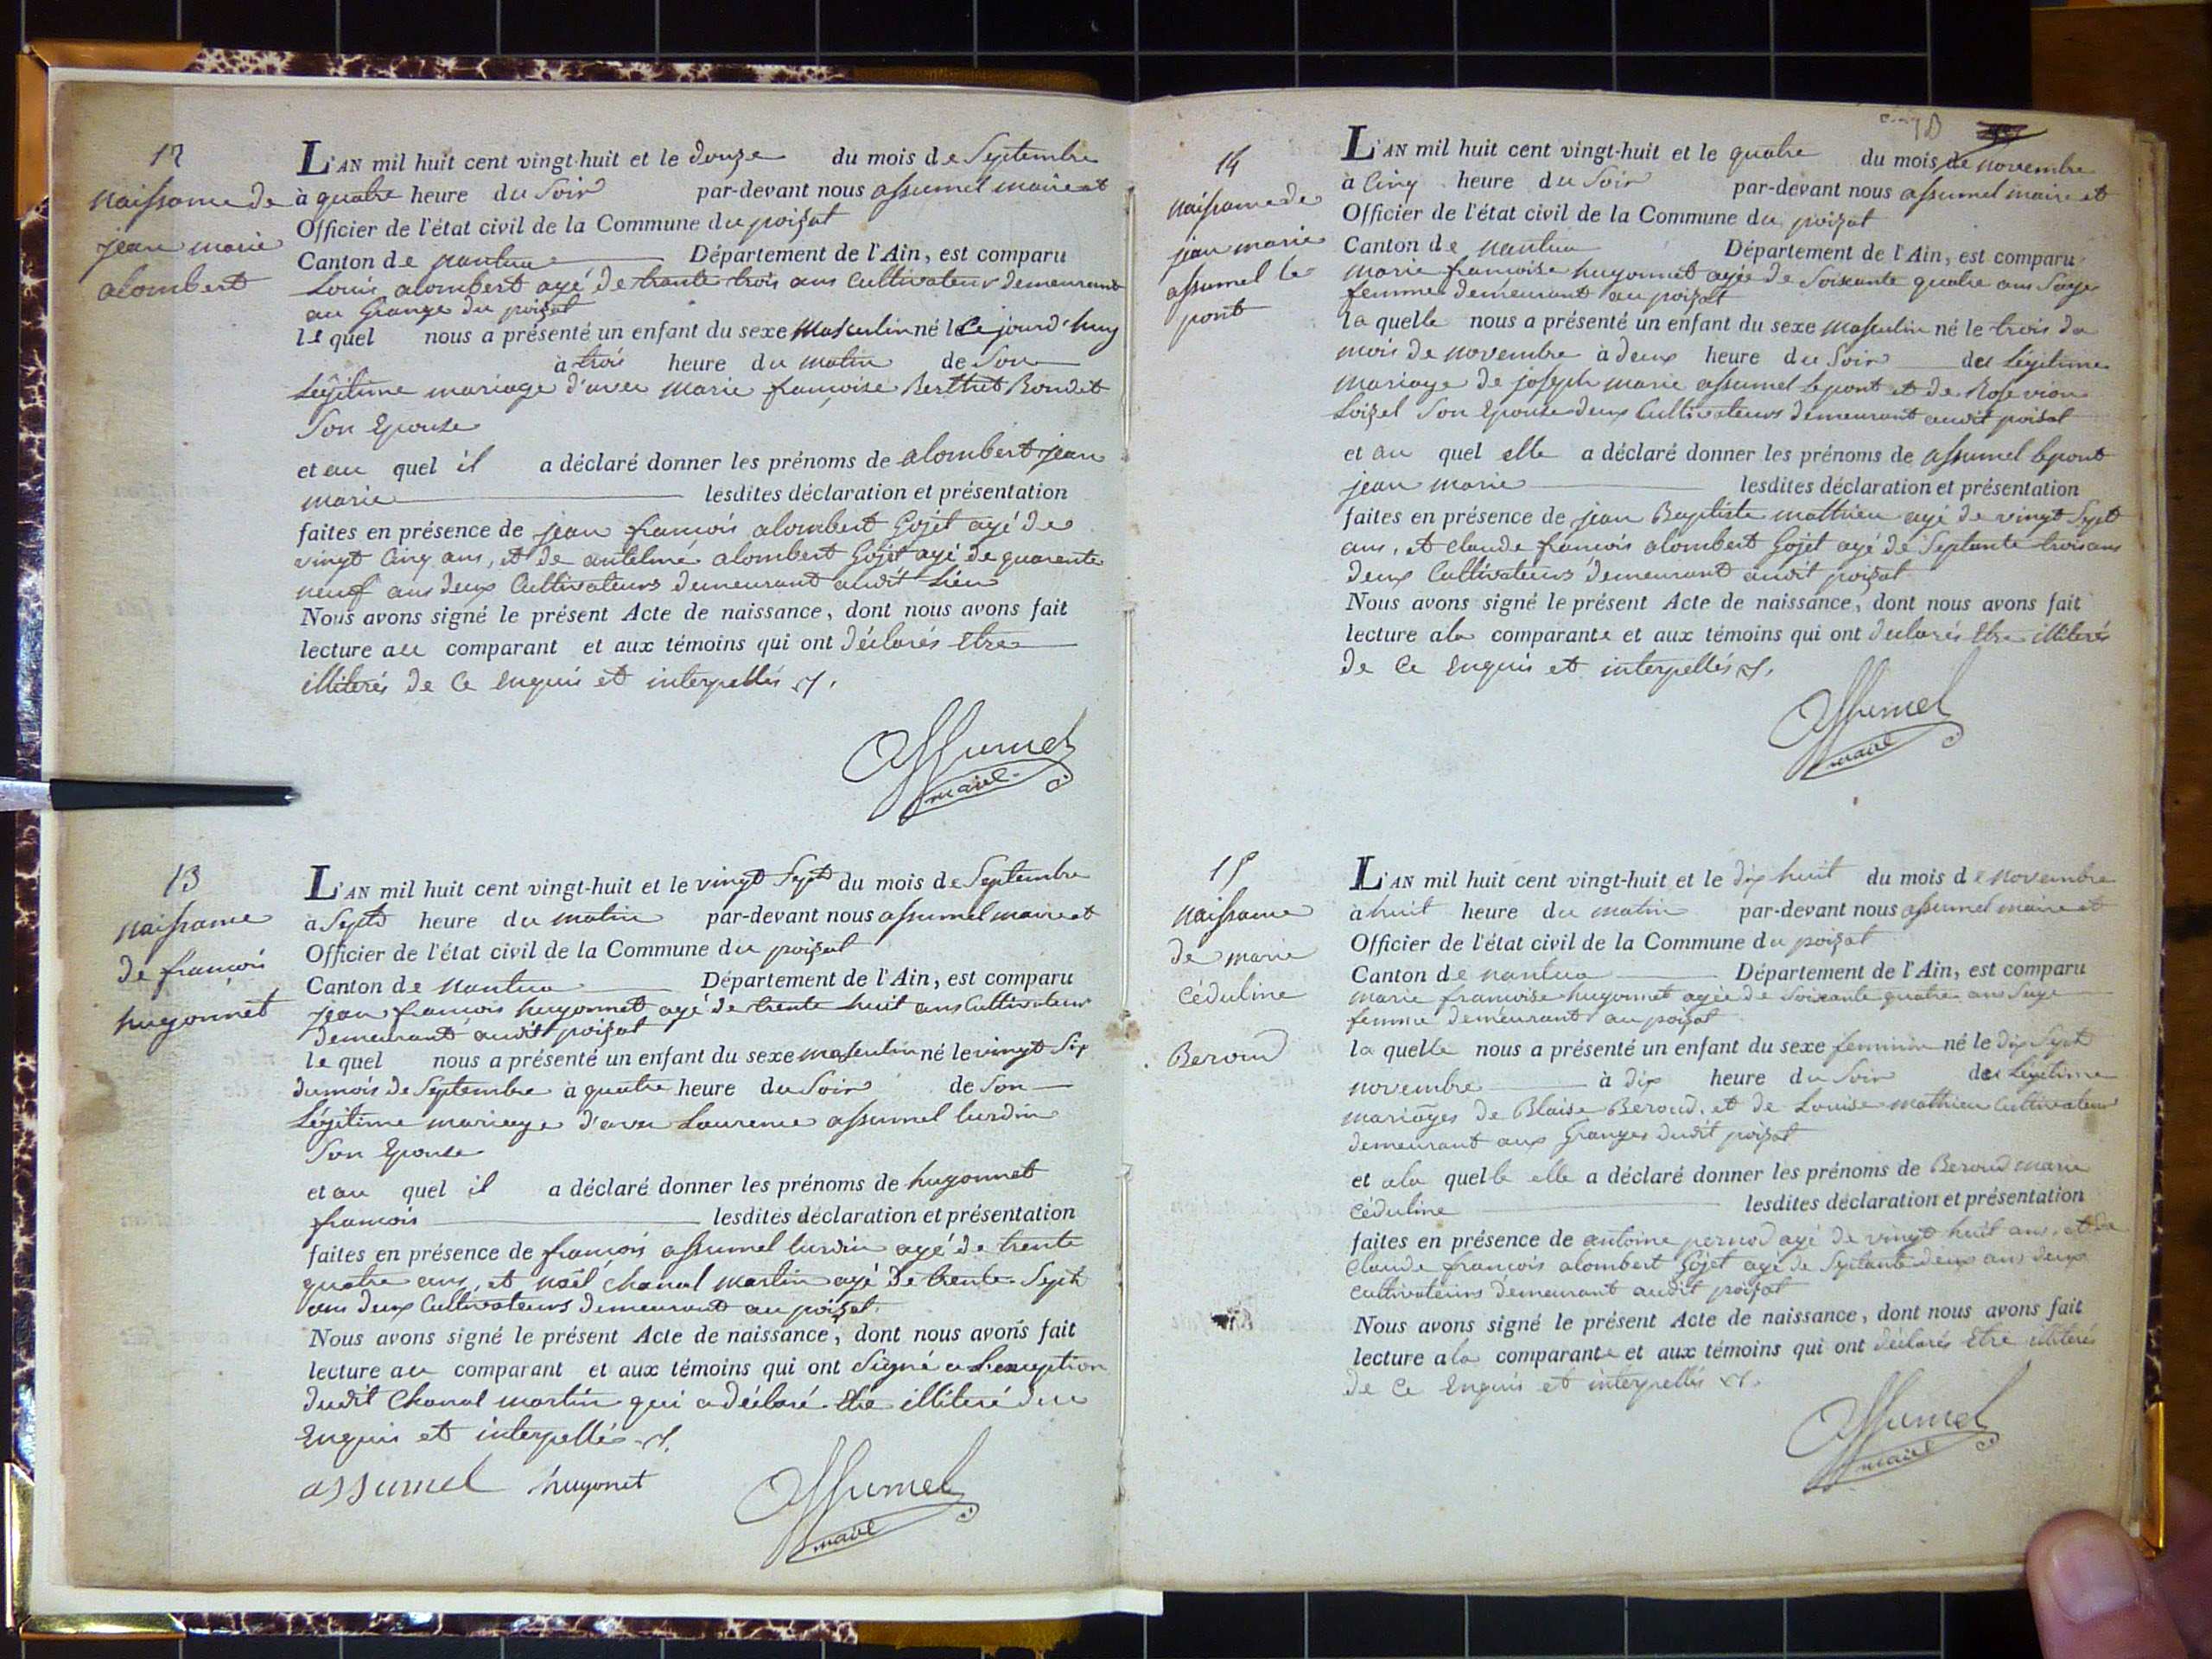 12
naissance de
jean marie
alombert
L'AN mil huit cent vingt-huit et le douze du mois de Septembre
à quatre heure du Soir par-devant nous assumel maire et
Officier de l'état civil de la Commune du poizat
Canton de nantua Département de l'Ain, est comparu
Louis alombert agé de trante trois ans Cultivateur demeurant
au Grange du poizat
le quel nous a présenté un enfant du sexe masculin né le Ce jourd'huy
à trois heure du matin de Son
Légitime mariage d'avec marie françoise Berthet Bondet
Son Epouse
et au quel il a déclaré donner les prénoms de alombert jean
marie lesdites déclaration et présentation
faites en présence de jean francois alombert Gojet agé de
vingt Cinq ans, et de antelme alombert Gojet agé de quarente
neuf ans deux Cultivateurs demeurant audit Lieu
Nous avons signé le présent Acte de naissance, dont nous avons fait
lecture au comparant et aux témoins qui ont déclarés Etre
illiterés de Ce Enquis et interpellés
Assumel
maire
13
naissance
de francois
hugonnet
L'AN mil huit cent vingt-huit et le vingt Sept du mois de Septembre
à Sept heure du matin par-devant nous assumel maire et
Officier de l'état civil de la Commune du poizat
Canton de Nantua Département de l'Ain, est comparu
jean francois hugonnet agé de trente huit ans Cultivateur
demeurant audit poizat
le quel nous a présenté un enfant du sexe masculin né le vingt Six
du mois de Septembre à quatre heure du Soir de Son
Légitime mariage d'avec Laurence assumel lurdin
Son Epouse
et au quel il a déclaré donner les prénoms de hugonnet
francois lesdites déclaration et présentation
faites en présence de francois assumel lurdin agé de trente
quatre ans, et noël Chanal martin agé de trente Sept
ans deux Cultivateurs demeurant au poizat
Nous avons signé le présent Acte de naissance, dont nous avons fait
lecture au comparant et aux témoins qui ont Signé a L'exception
dudit Chanal martin qui a déclaré être illiteré de ce
Enquis et interpellé
assumel hugonet
Assumel
maire
14
naissance de
jean marie
assumel le
pont
L'AN mil huit cent vingt-huit et le quatre du mois de novembre
à Cinq heure du Soir par-devant nous assumel maire et
Officier de l'état civil de la Commune du poizat
Canton de nantua Département de l'Ain, est comparu
marie francoise hugonnet agée de Soixante quatre ans Sage
femme demeurant au poizat
la quelle nous a présenté un enfant du sexe masculin né le trois du
mois de novembre à deux heure du Soir du Légitime
mariage de joseph marie assumel lepont et de Rose vion
Loizel Son Epouse deux Cultivateurs demeurant audit poizat
et au quel elle a déclaré donner les prénoms de assumel lepont
jean marie lesdites déclaration et présentation
faites en présence de jean Baptiste mathieu agé de vingt Sept
ans, et Claude francois alombert Gojet agé de Septante trois ans
deux Cultivateurs demeurant audit poizat
Nous avons signé le présent Acte de naissance, dont nous avons fait
lecture a la comparante et aux témoins qui ont declarés Etre illiterés
de Ce Enquis et interpellés
Assumel
maire
15
naissance
de marie
Céduline
Beroud
L'AN mil huit cent vingt-huit et le dix huit du mois de novembre
à huit heure du matin par-devant nous assumel maire et
Officier de l'état civil de la Commune du poizat
Canton de nantua Département de l'Ain, est comparu
marie francoise hugonnet agée de Soixante quatre ans Sage
femme demeurant au poizat
la quelle nous a présenté un enfant du sexe feminin né le dix Sept
novembre à dix heure du Soir du Légitime
mariages de Blaise Beroud et de Louise mathieu Cultivateur
demeurant aux Granges dudit poizat
et a la quelle elle a déclaré donner les prénoms de Beroud marie
Céduline lesdites déclaration et présentation
faites en présence de antoine pernod agé de vingt huit ans, et de
Claude francois alombert Gojet agé de Septante deux ans deux
cultivateurs demeurant audit poizat
Nous avons signé le présent Acte de naissance, dont nous avons fait
lecture a la comparante et aux témoins qui ont déclarés Etre illiterés
de Ce Enquis et interpellés
Assumel
maire